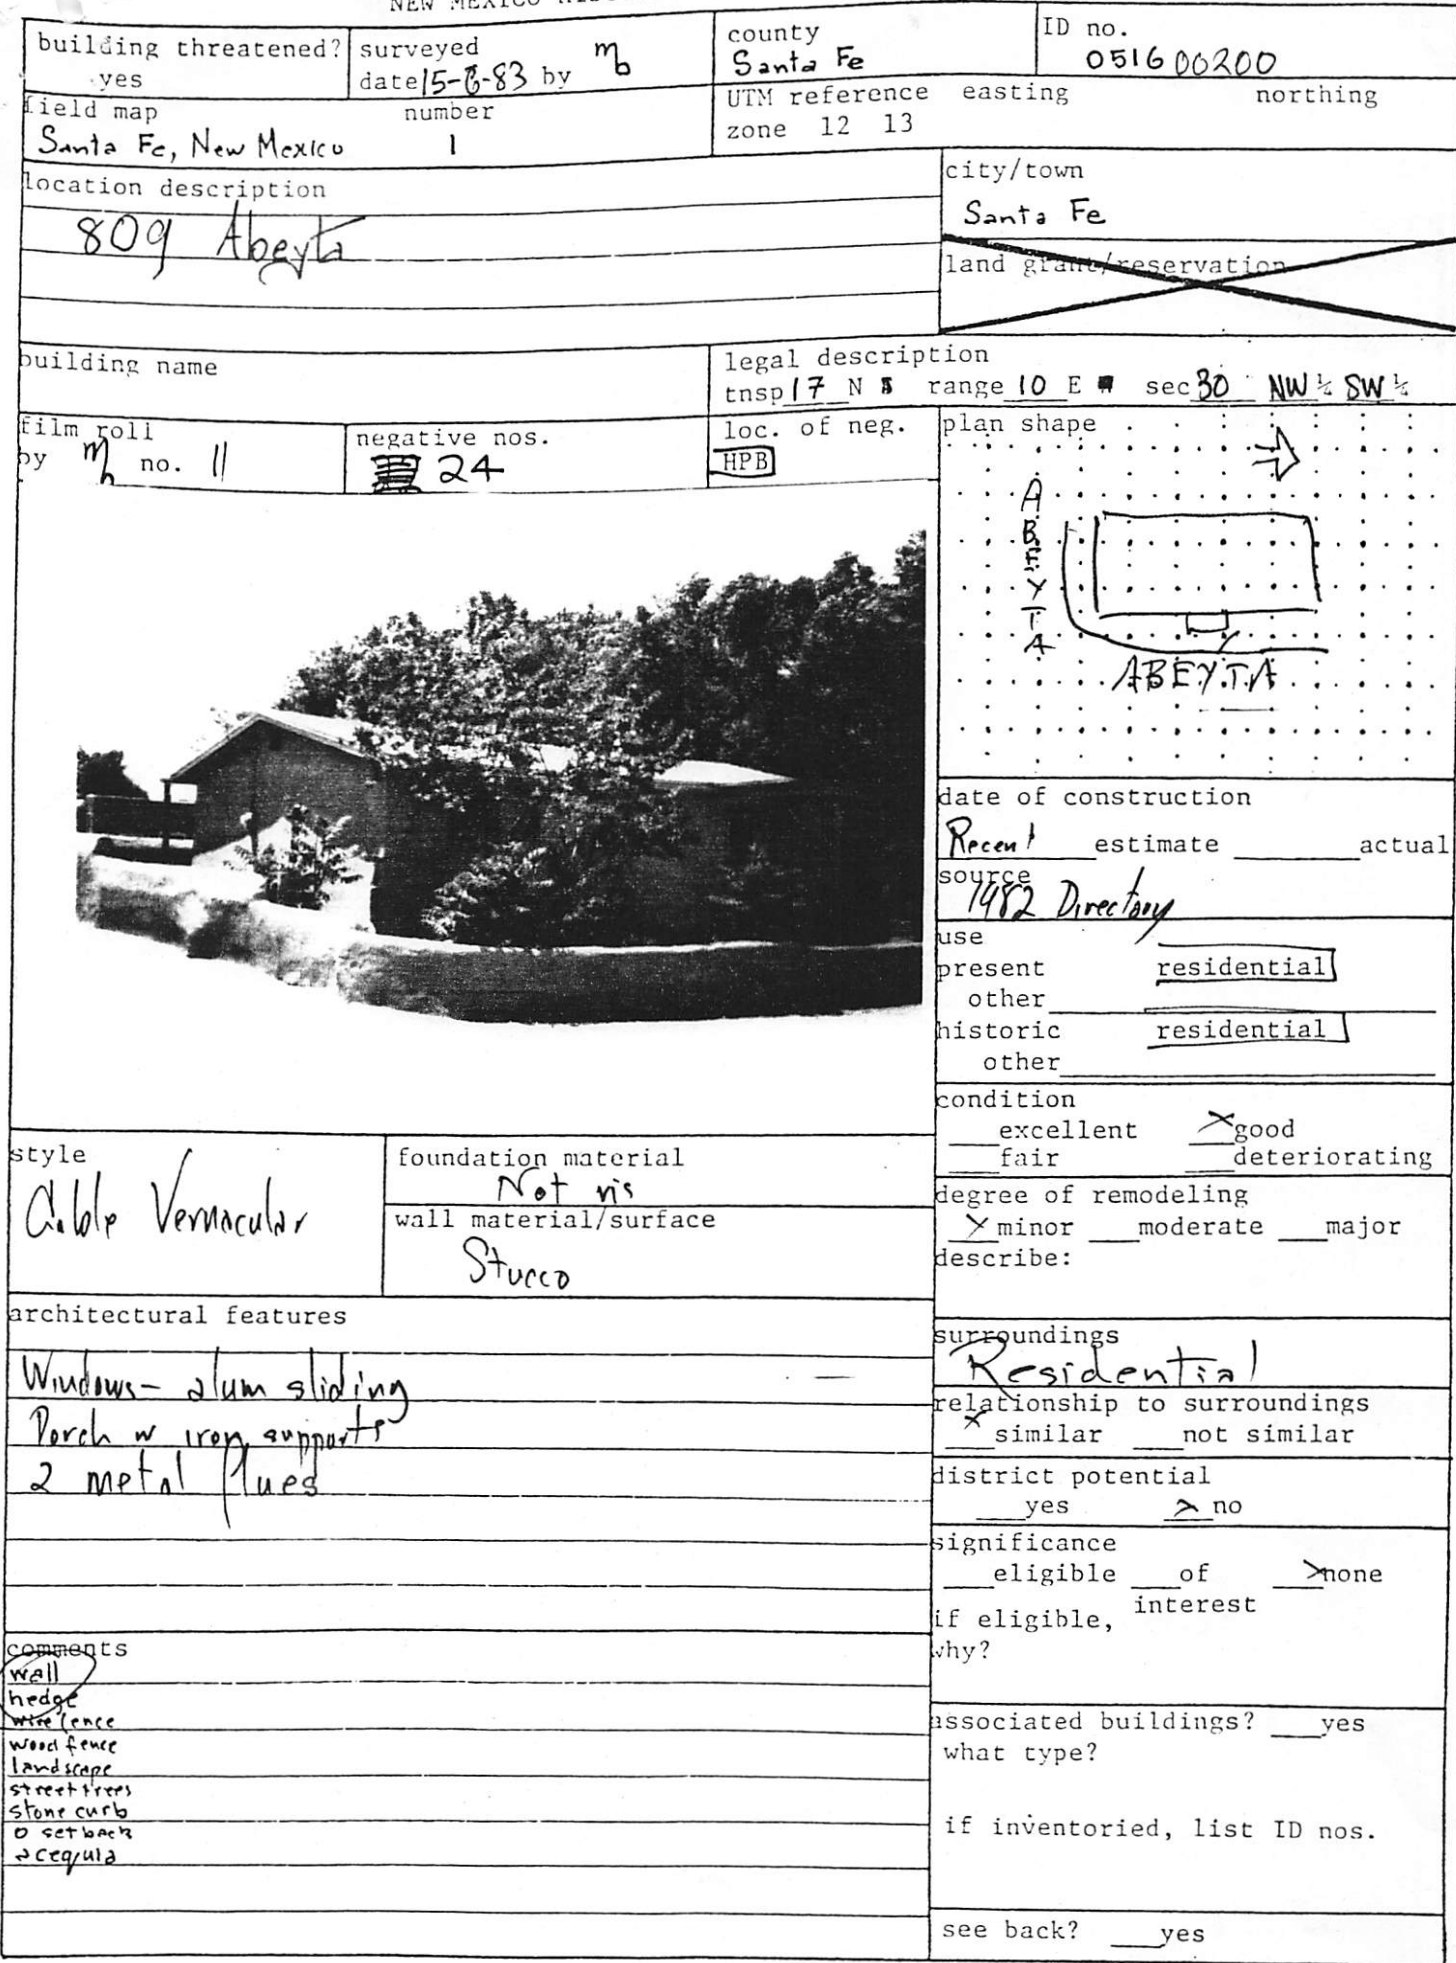 NEW MEXICO
building threatened?
yes
surveyed
date 15-6-83 by mb
county
Santa Fe
ID no.
051600200
field map number
Santa Fe, New Mexico 1
UTM reference easting northing
zone 12 13
location description
809 Abeyta
city/town
Santa Fe
land grant/reservation
building name
legal description
tnsp 17 N range 10 E sec 30 NW ¼ SW ¼
film roll
by mb no. 11
negative nos.
24
loc. of neg.
HPB
plan shape
ABEYTA
ABEYTA
date of construction
Recent estimate actual
source
1982 Directory
use
present residential
other
historic residential
other
condition
excellent x good
fair deteriorating
style
Gable Vernacular
foundation material
Not vis
wall material/surface
Stucco
degree of remodeling
x minor moderate major
describe:
architectural features
Windows- alum sliding
Porch w iron supports
2 metal flues
surroundings
Residential
relationship to surroundings
x similar not similar
district potential
yes x no
significance
eligible of x none
interest
if eligible,
why?
comments
wall
hedge
wire fence
wood fence
landscape
street trees
stone curb
0 setback
acequia
associated buildings? yes
what type?
if inventoried, list ID nos.
see back? yes